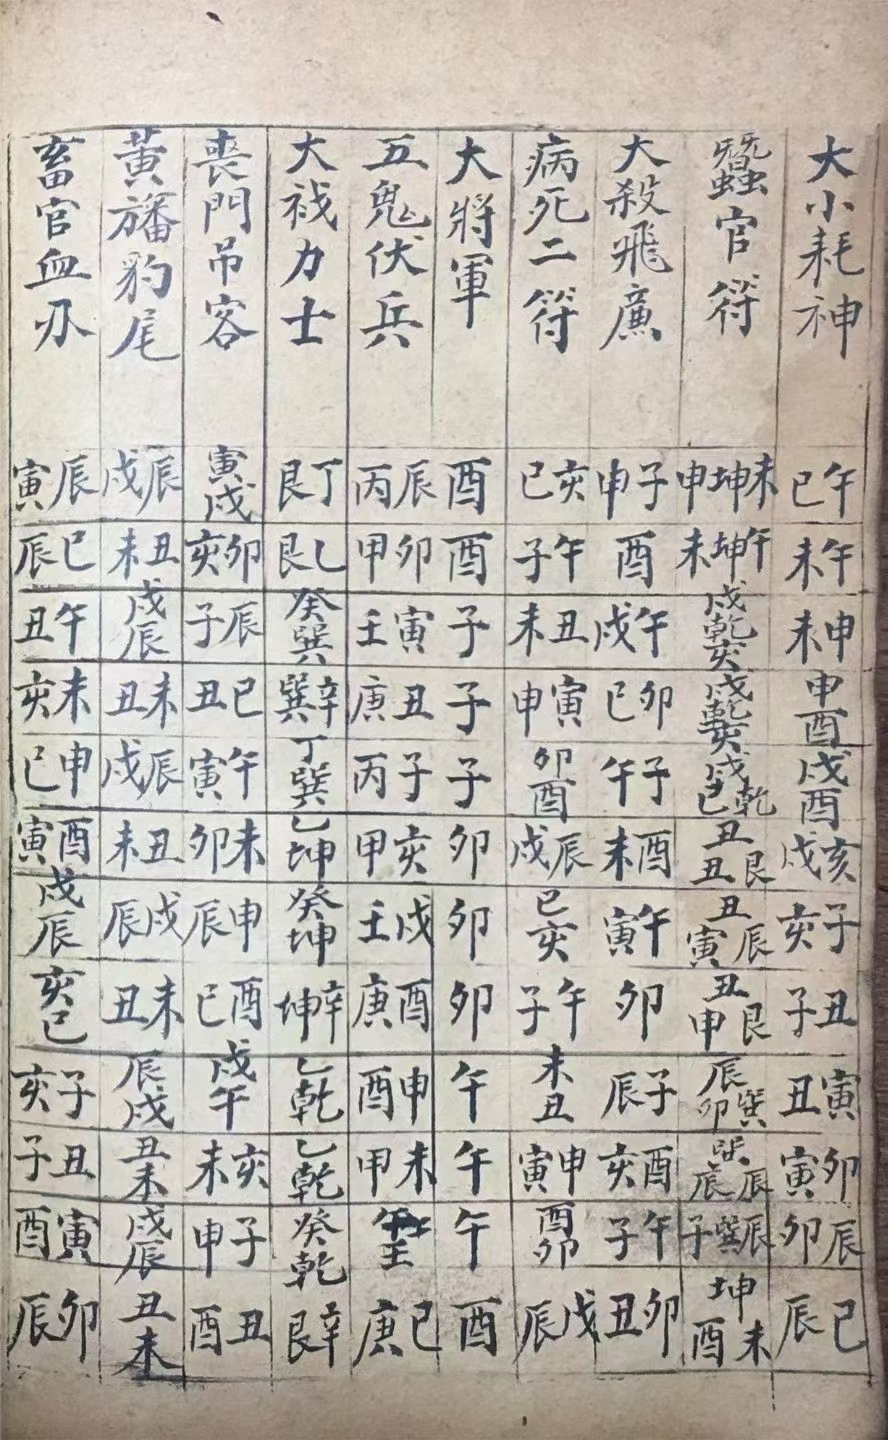 大小耗神 午巳 午未 申未 申酉 戌酉 亥戌 子亥 丑子 寅丑 卯寅 辰卯 巳辰
蠶官符 未坤申 午坤未 戌乾亥 戌乾亥 戌乾巳 丑艮丑 丑辰寅 丑艮申 辰巽卯 巽辰辰 辰巽子 坤未酉
大殺飛廉 子申 酉 午戌 卯巳 子午 酉未 午寅 卯 子辰 酉亥 午子 卯丑
病死二符 亥巳 午子 丑未 寅申 卯酉 辰戌 巳亥 午子 未丑 申寅 酉卯 戌辰
大將軍 酉 酉 子 子 子 卯 卯 卯 午 午 午 酉
五鬼伏兵 辰丙 卯甲 寅壬 丑庚 子丙 亥甲 戌壬 酉庚 申酉 未甲 午壬 巳庚
大力士 丁艮 乙艮 癸巽 辛巽 丁巽 乙坤 癸坤 辛坤 乙乾 乙乾 癸乾 辛艮
喪門吊客 寅戌 卯亥 辰子 巳丑 午寅 未卯 申辰 酉巳 戌午 亥未 子申 丑酉
黃旛豹尾 辰戌 丑未 戌辰 未丑 辰戌 丑未 戌辰 未丑 辰戌 丑未 戌辰 丑未
畜官血刃 辰寅 巳辰 午丑 未亥 申巳 酉寅 戌辰 亥巳 子亥 丑子 寅酉 卯辰